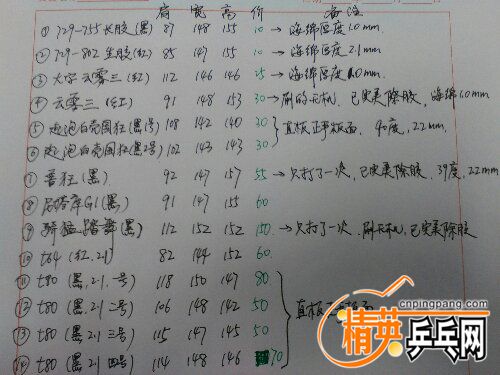 肩 宽 高 价 海绵
① 729-755长胶(黑) 87 148 155 10 → 海绵厚度1.0mm.
② 729-802生胶(红) 85 147 155 10 → 海绵厚度2.1mm
③ 大字云雾三(红) 112 146 146 25 → 海绵厚度1.0mm.
④ 云雾三(红) 91 148 153 30 → 刷的无机, 已实美除胶, 海绵1.0mm
⑤ 跑狂(黑1号) 108 142 140 30
⑥ 狂(黑2号) 102 143 143 30
直板正手板面. 40度, 2.2mm.
⑦ 普狂(黑) 92 147 157 55 → 只打了一次, 已实美除胶, 39度, 2.2mm
⑧ 尼塔库G1(黑) 91 147 155 60
⑨ (黑) 112 152 152 150 → 只打了一次. 刷无机, 已实美除胶
⑩ t64(红, 2.1) 82 144 152 60.
⑪ t80(黑, 2.1, 一号) 118 150 147 80
⑫ t80(黑, 2.1 二号) 106 148 142 50
⑬ t80(黑, 2.1 三号) 115 147 145 50
⑭ t80(黑 2.1 四号) 114 148 146 70
直板正手板面
cnpingpang.com
精英乒乓网